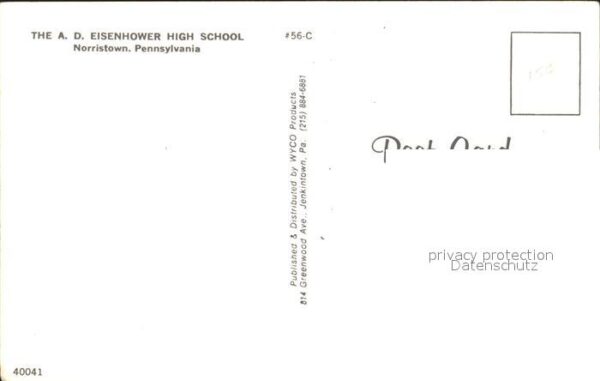 THE A. D. EISENHOWER HIGH SCHOOL
Norristown, Pennsylvania
#56-C
Published & Distributed by WYCO Products
814 Greenwood Ave., Jenkintown, Pa. (215) 884-6881
150
Post Card
privacy protection
Datenschutz
40041